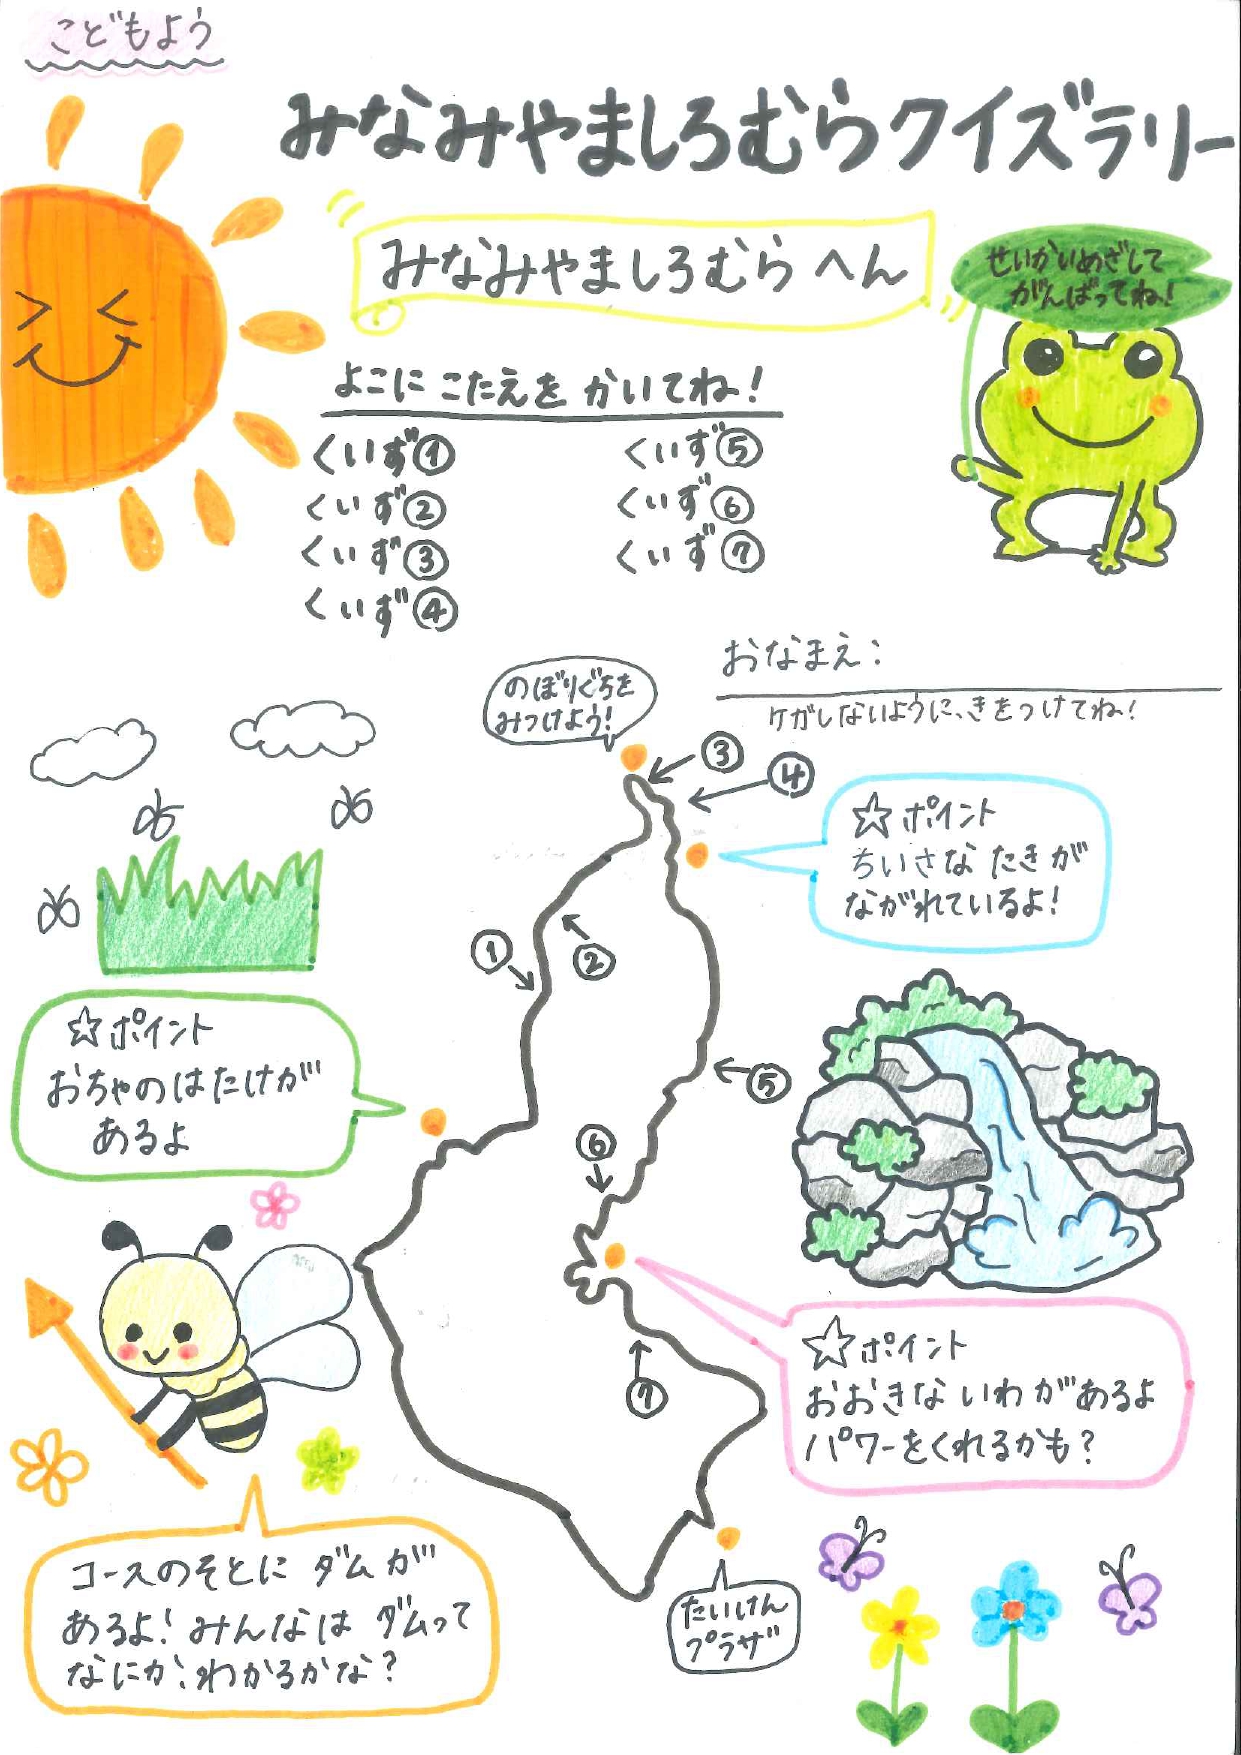 こどもよう
みなみやましろむらクイズラリー
みなみやましろむら へん
せいかいめざして
がんばってね!
よこに こたえを かいてね!
くいず①
くいず②
くいず③
くいず④
くいず⑤
くいず⑥
くいず⑦
おなまえ:
ケガしないように、きをつけてね!
のぼりぐちを
みつけよう!
③
④
☆ポイント
ちいさな たきが
ながれているよ!
①
②
☆ポイント
おちゃのはたけが
あるよ
⑤
⑥
☆ポイント
おおきな いわがあるよ
パワーをくれるかも?
⑦
コースのそとに ダムが
あるよ!みんなは ダムって
なにか、わかるかな?
たいけん
プラザ